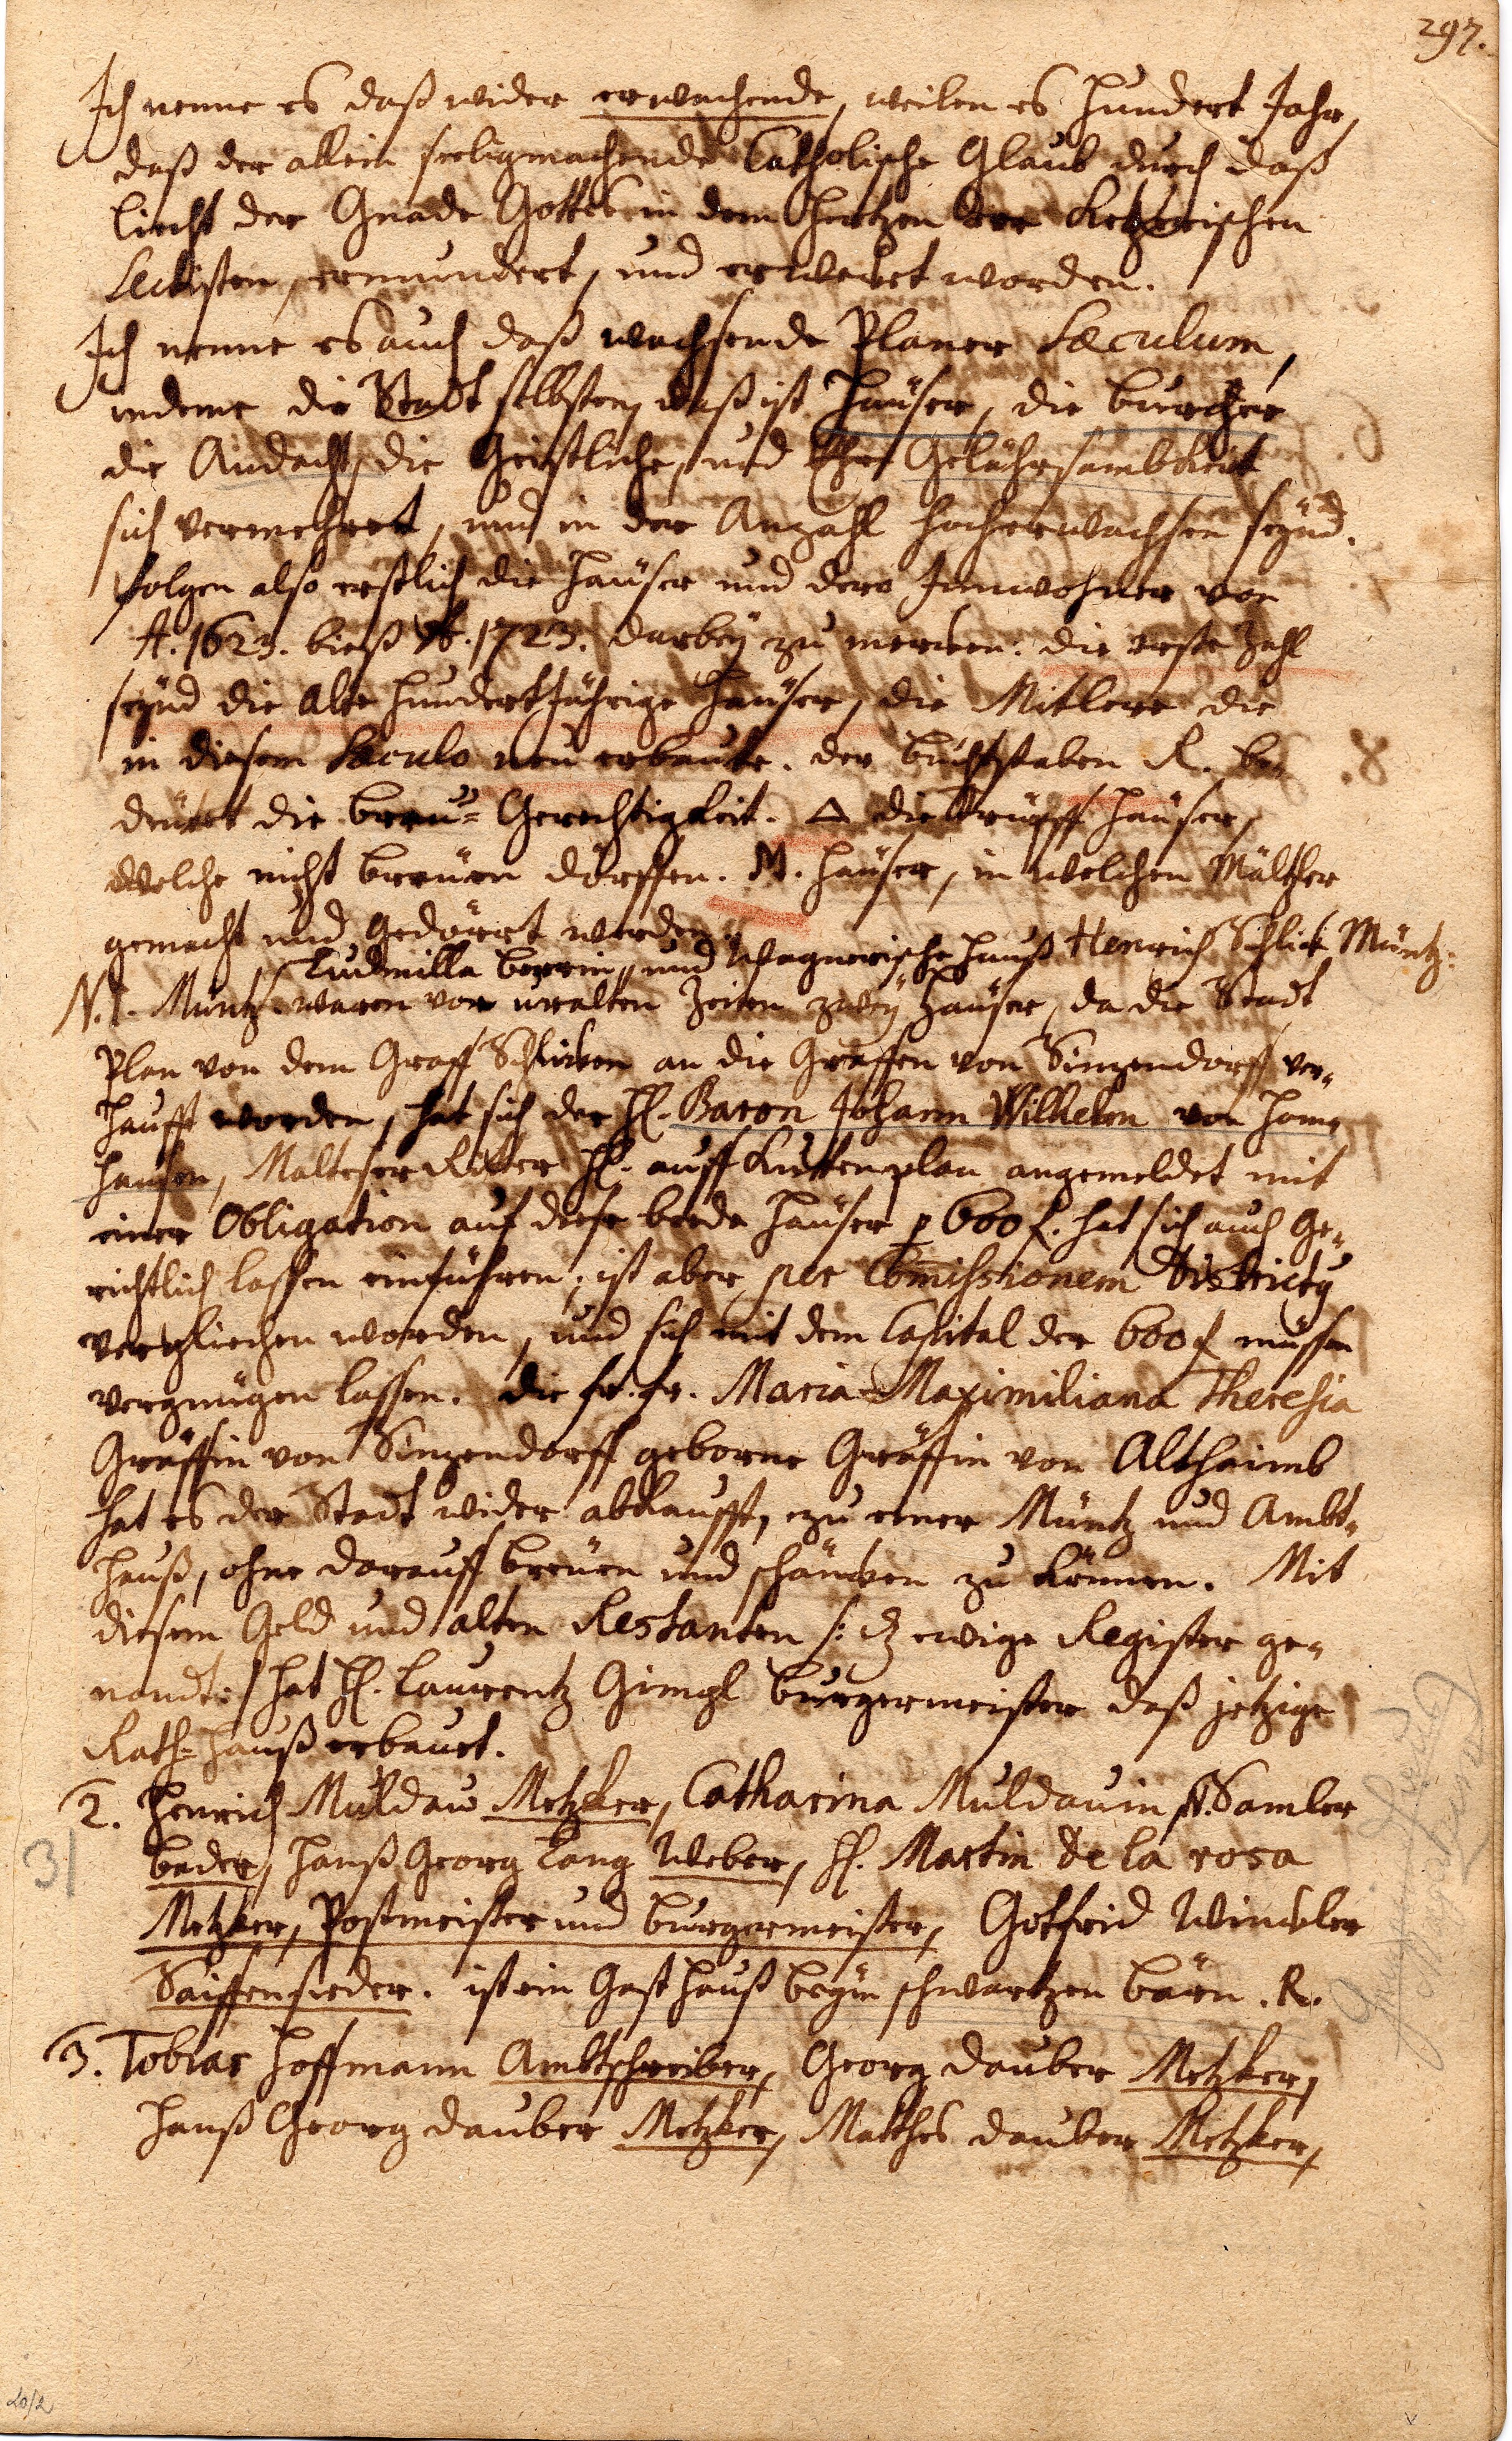 297.
Ich nenne es daß wider erwachende, weilen es hundert Jahr,
daß der allein seeligmachende Catholische Glaub durch daß
liecht der Gnade Gottes in dem Hertzen der Ketzerischen
Sectisten, ermundert, und erwecket worden.
Ich nenne es auch daß wachsende Planer Sæculum,
indeme die Stadt selbsten, daß ist Häuser, die burger
die Andacht, die Geistliche, und Gelährsambkeit
sich vermehret, und in der Anzahl hocherwachsen seynd.
folgen also erstlich die Häuser und dero Innwohner von
A. 1623. bieß A. 1723. darbey zu mercken: die erste Zahl
seynd die alte hundertjährige Häuser, die Mitlere die
in diesem Sæculo neu erbaute. der buchstaben R. be-
deütet die breu-Gerechtigkeit. △ die Häuser,
welche nicht breüen dörffen. M. Häuser, in welchen Mältzer
gemacht und gedörrt werden.
Ludmilla und Wagnerische Hauß Henrich Schlick Müntz:
N. 1. Müntz. waren vor uralten Zeiten zwey Häuser, da die Stadt
Plan von dem Graff Schlicken an die Graffen von Sinzendorff ver-
kaufft worden, hat sich der H. Baron Johann Wilhelm von Hom-
hausen, Malteser Ritter H. auff Kuttenplan angemeldet mit
einer Obligation auf diese beede Häuser p 600 f. hat sich auch Ge-
richtlich lassen einführen, ist aber per Com̄issionem Districty
verglichen worden, und sich mit dem Capital der 600 f müssen
vergnügen lassen. die fr. fr. Maria Maximiliana Theresia
Gräffin von Sinzendorff geborne Gräffin von Althaimb
hat es der Stadt wider abkaufft, zu einer Müntz und Ambt-
Hauß, ohne darauff breüen und schäncken zu können. Mit
diesem Geld und alten Restanten /: dz ewige Register ge-
nandt :/ hat H. Laurentz Gimgl burgermeister daß jetzige
Rath-Hauß erbauet.
2. Henrich Muldau Metzker, Catharina Muldauin, Samler
bader, Hanß Georg Lang Weber, H. Martin de la rosa
Metzker, Postmeister und burgermeister, Gotfrid Winckler
Saiffensieder. ist ein Gast Hauß beym schwartzen bärn. R.
3. Tobias Hoffmann Ambtschreiber, Georg Dauber Metzker,
Hanß Georg dauber Metzker, Mathes dauber Metzker,
31
20/2